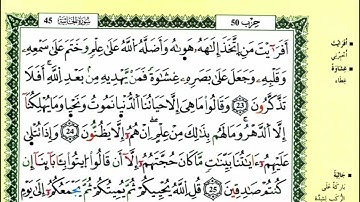 45 سورة الجاثية حزب 50
أَفَرَءَيْتَ مَنِ ٱتَّخَذَ إِلَٰهَهُۥ هَوَىٰهُ وَأَضَلَّهُ ٱللَّهُ عَلَىٰ عِلْمٍ وَخَتَمَ عَلَىٰ سَمْعِهِۦ
وَقَلْبِهِۦ وَجَعَلَ عَلَىٰ بَصَرِهِۦ غِشَٰوَةً فَمَن يَهْدِيهِ مِنۢ بَعْدِ ٱللَّهِ أَفَلَا
تَذَكَّرُونَ 23 وَقَالُوا۟ مَا هِىَ إِلَّا حَيَاتُنَا ٱلدُّنْيَا نَمُوتُ وَنَحْيَا وَمَا يُهْلِكُنَا
إِلَّا ٱلدَّهْرُ وَمَا لَهُم بِذَٰلِكَ مِنْ عِلْمٍ إِنْ هُمْ إِلَّا يَظُنُّونَ 24 وَإِذَا تُتْلَىٰ
عَلَيْهِمْ ءَايَٰتُنَا بَيِّنَٰتٍ مَّا كَانَ حُجَّتَهُمْ إِلَّآ أَن قَالُوا۟ ٱئْتُوا۟ بِـَٔابَآئِنَآ إِن
كُنتُمْ صَٰدِقِينَ 25 قُلِ ٱللَّهُ يُحْيِيكُمْ ثُمَّ يُمِيتُكُمْ ثُمَّ يَجْمَعُكُمْ إِلَىٰ يَوْمِ
أفرأيت
أخبرني
غشاوة
غطاء
جاثية
باركة على
الركب لشدة